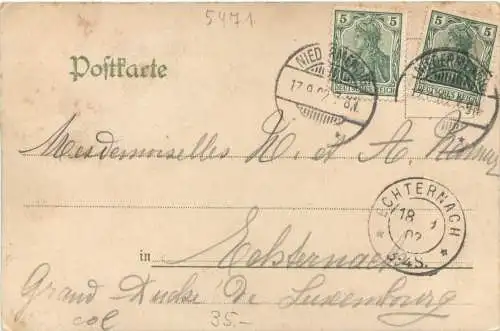 5471.
5 5
DEUTSCHES REICH DEUTSCHES REICH
Postkarte
17.9.02
Mesdemoiselles K. et A.
ECHTERNACH
18 9 02
in Echternach
Grand Duché de Luxembourg
col 35.-